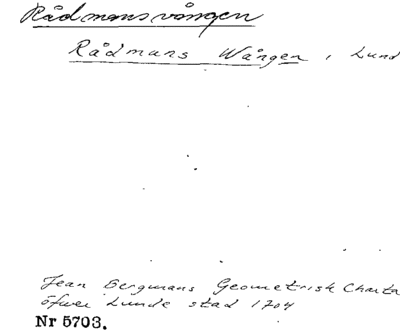 Rådmansvången
Rådmans Wången, Lund
Jean Bergmans Geometrisk Charta
öfwer Lunde stad 1704
Nr 5703.